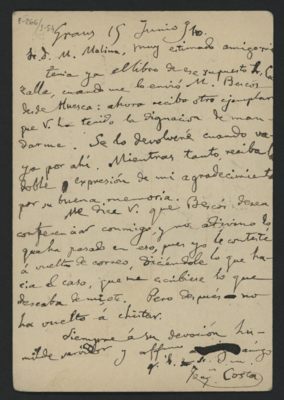 Graus 15 Junio 910.
Sr. D. M. Molina, muy estimado amigo:
tenia ya el libro de ese supuesto
zalle, cuando me lo envió M. Bescós
desde Huesca: ahora recibo otro ejemplar
que V. ha tenido la dignacion de man-
darme. Se lo devolveré cuando va-
ya por ahí. Mientras tanto, reciba la
doble expresión de mi agradecimiento
por su buena memoria.
Me dice V. que Bescós desea
conferenciar conmigo, y no adivino lo
que ha pasado en eso, pues yo le contesté
á vuelta de correo, diciéndole lo que ha-
cia el caso, que me escribiese lo que
deseaba de mí, etc. Pero después no
ha vuelto á chistar.
Siempre á su devoción hu-
milde servidor y affmo amigo
q. b. s. m.
Joaqn Costa